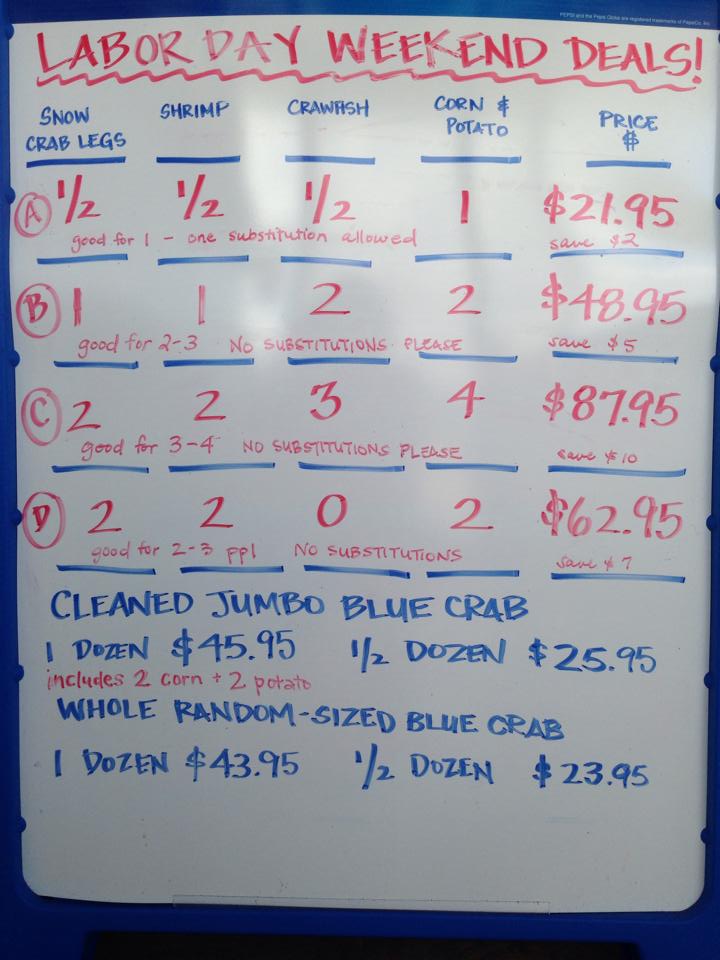 PEPSI and the Pepsi Globe are registered trademarks of PepsiCo, Inc.
LABOR DAY WEEKEND DEALS!
SNOW CRAB LEGS SHRIMP CRAWFISH CORN & POTATO PRICE $
A 1/2 1/2 1/2 1 $21.95
good for 1 - one substitution allowed save $2
B 1 1 2 2 $48.95
good for 2-3 NO SUBSTITUTIONS PLEASE save $5
C 2 2 3 4 $87.95
good for 3-4 NO SUBSTITUTIONS PLEASE save $10
D 2 2 0 2 $62.95
good for 2-3 ppl NO SUBSTITUTIONS save $7
CLEANED JUMBO BLUE CRAB
1 DOZEN $45.95 1/2 DOZEN $25.95
includes 2 corn + 2 potato
WHOLE RANDOM-SIZED BLUE CRAB
1 DOZEN $43.95 1/2 DOZEN $23.95